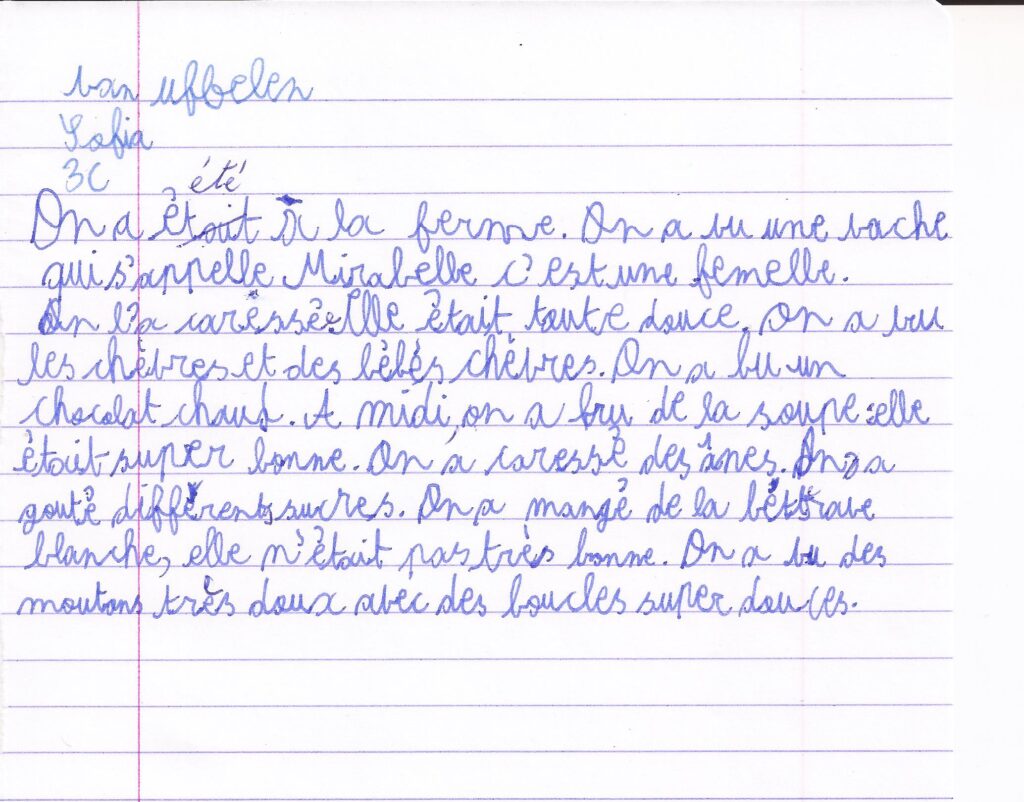 van uffelen
Sofia
3C
été
On a était à la ferme. On a vu une vache
qui s'appelle Mirabelle c'est une femelle.
On l'a caressé. Elle était toute douce. On a vu
les chèvres et des bébés chèvres. On a bu un
chocolat chaud. A midi, on a bu de la soupe : elle
était super bonne. On a caressé des ânes. On a
gouté différents sucres. On a mangé de la bettrave
blanche, elle n'était pas très bonne. On a vu des
moutons très doux avec des boucles super douces.